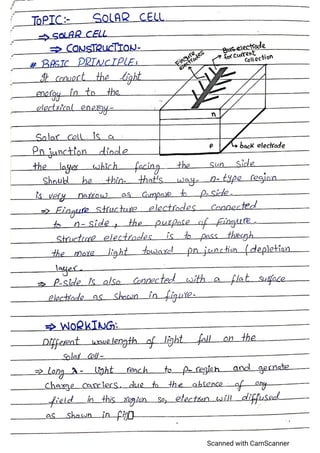 TOPIC:- SOLAR CELL
⇒ SOLAR CELL
⇒ CONSTRUCTION-
# BASIC PRINCIPLE:
It convert the light
energy in to the
electrical energy-
Fingure electrodes
Bus electrode for current collection
n
P
back electrode
Solar Cell is a
Pn junction diode
the layer which facing the sun side
Should be thin. that's way n-type region
is very narrow as compare to p-side.
⇒ Fingure structure electrodes connected
to n-side, the purpose of Fingure.
structure electrodes is to pass through
the more light toward pn junction (depletion
layer.
⇒ P-side is also connected with a flat surface
electrode as shown in figure-
⇒ WORKING:
Different wavelength of light fall on the
solar cell-
⇒ Long λ- light reach to p-region and gernate
Charge carriers. due to the absence of any
field in this region so, electron will diffused
as shown in fig
Scanned with CamScanner